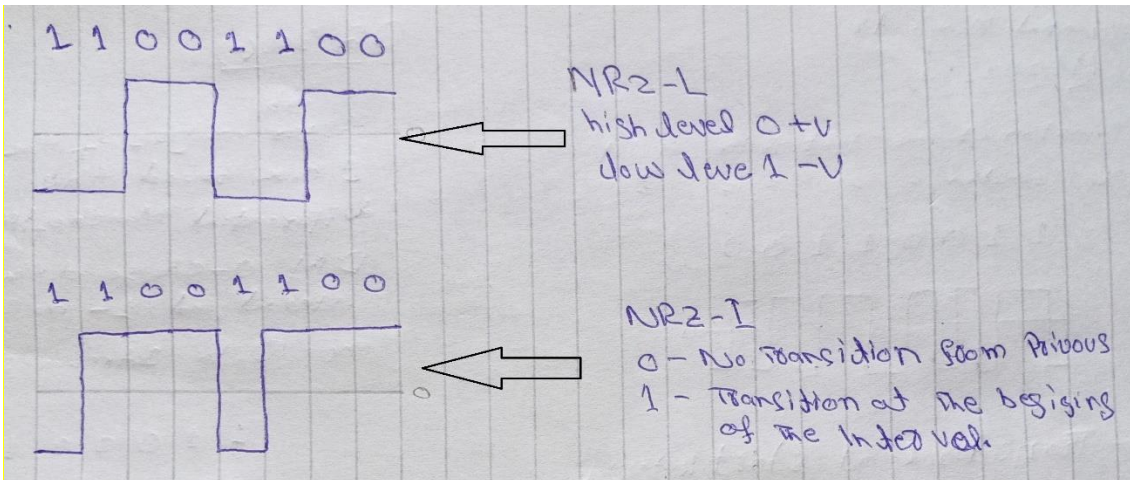 1 1 0 0 1 1 0 0
NRZ-L
high level 0 +V
0
low leve 1 -V
1 1 0 0 1 1 0 0
NRZ-I
0 - No Transition from Privous
1 - Transition at The begiging
0
of The Interval.